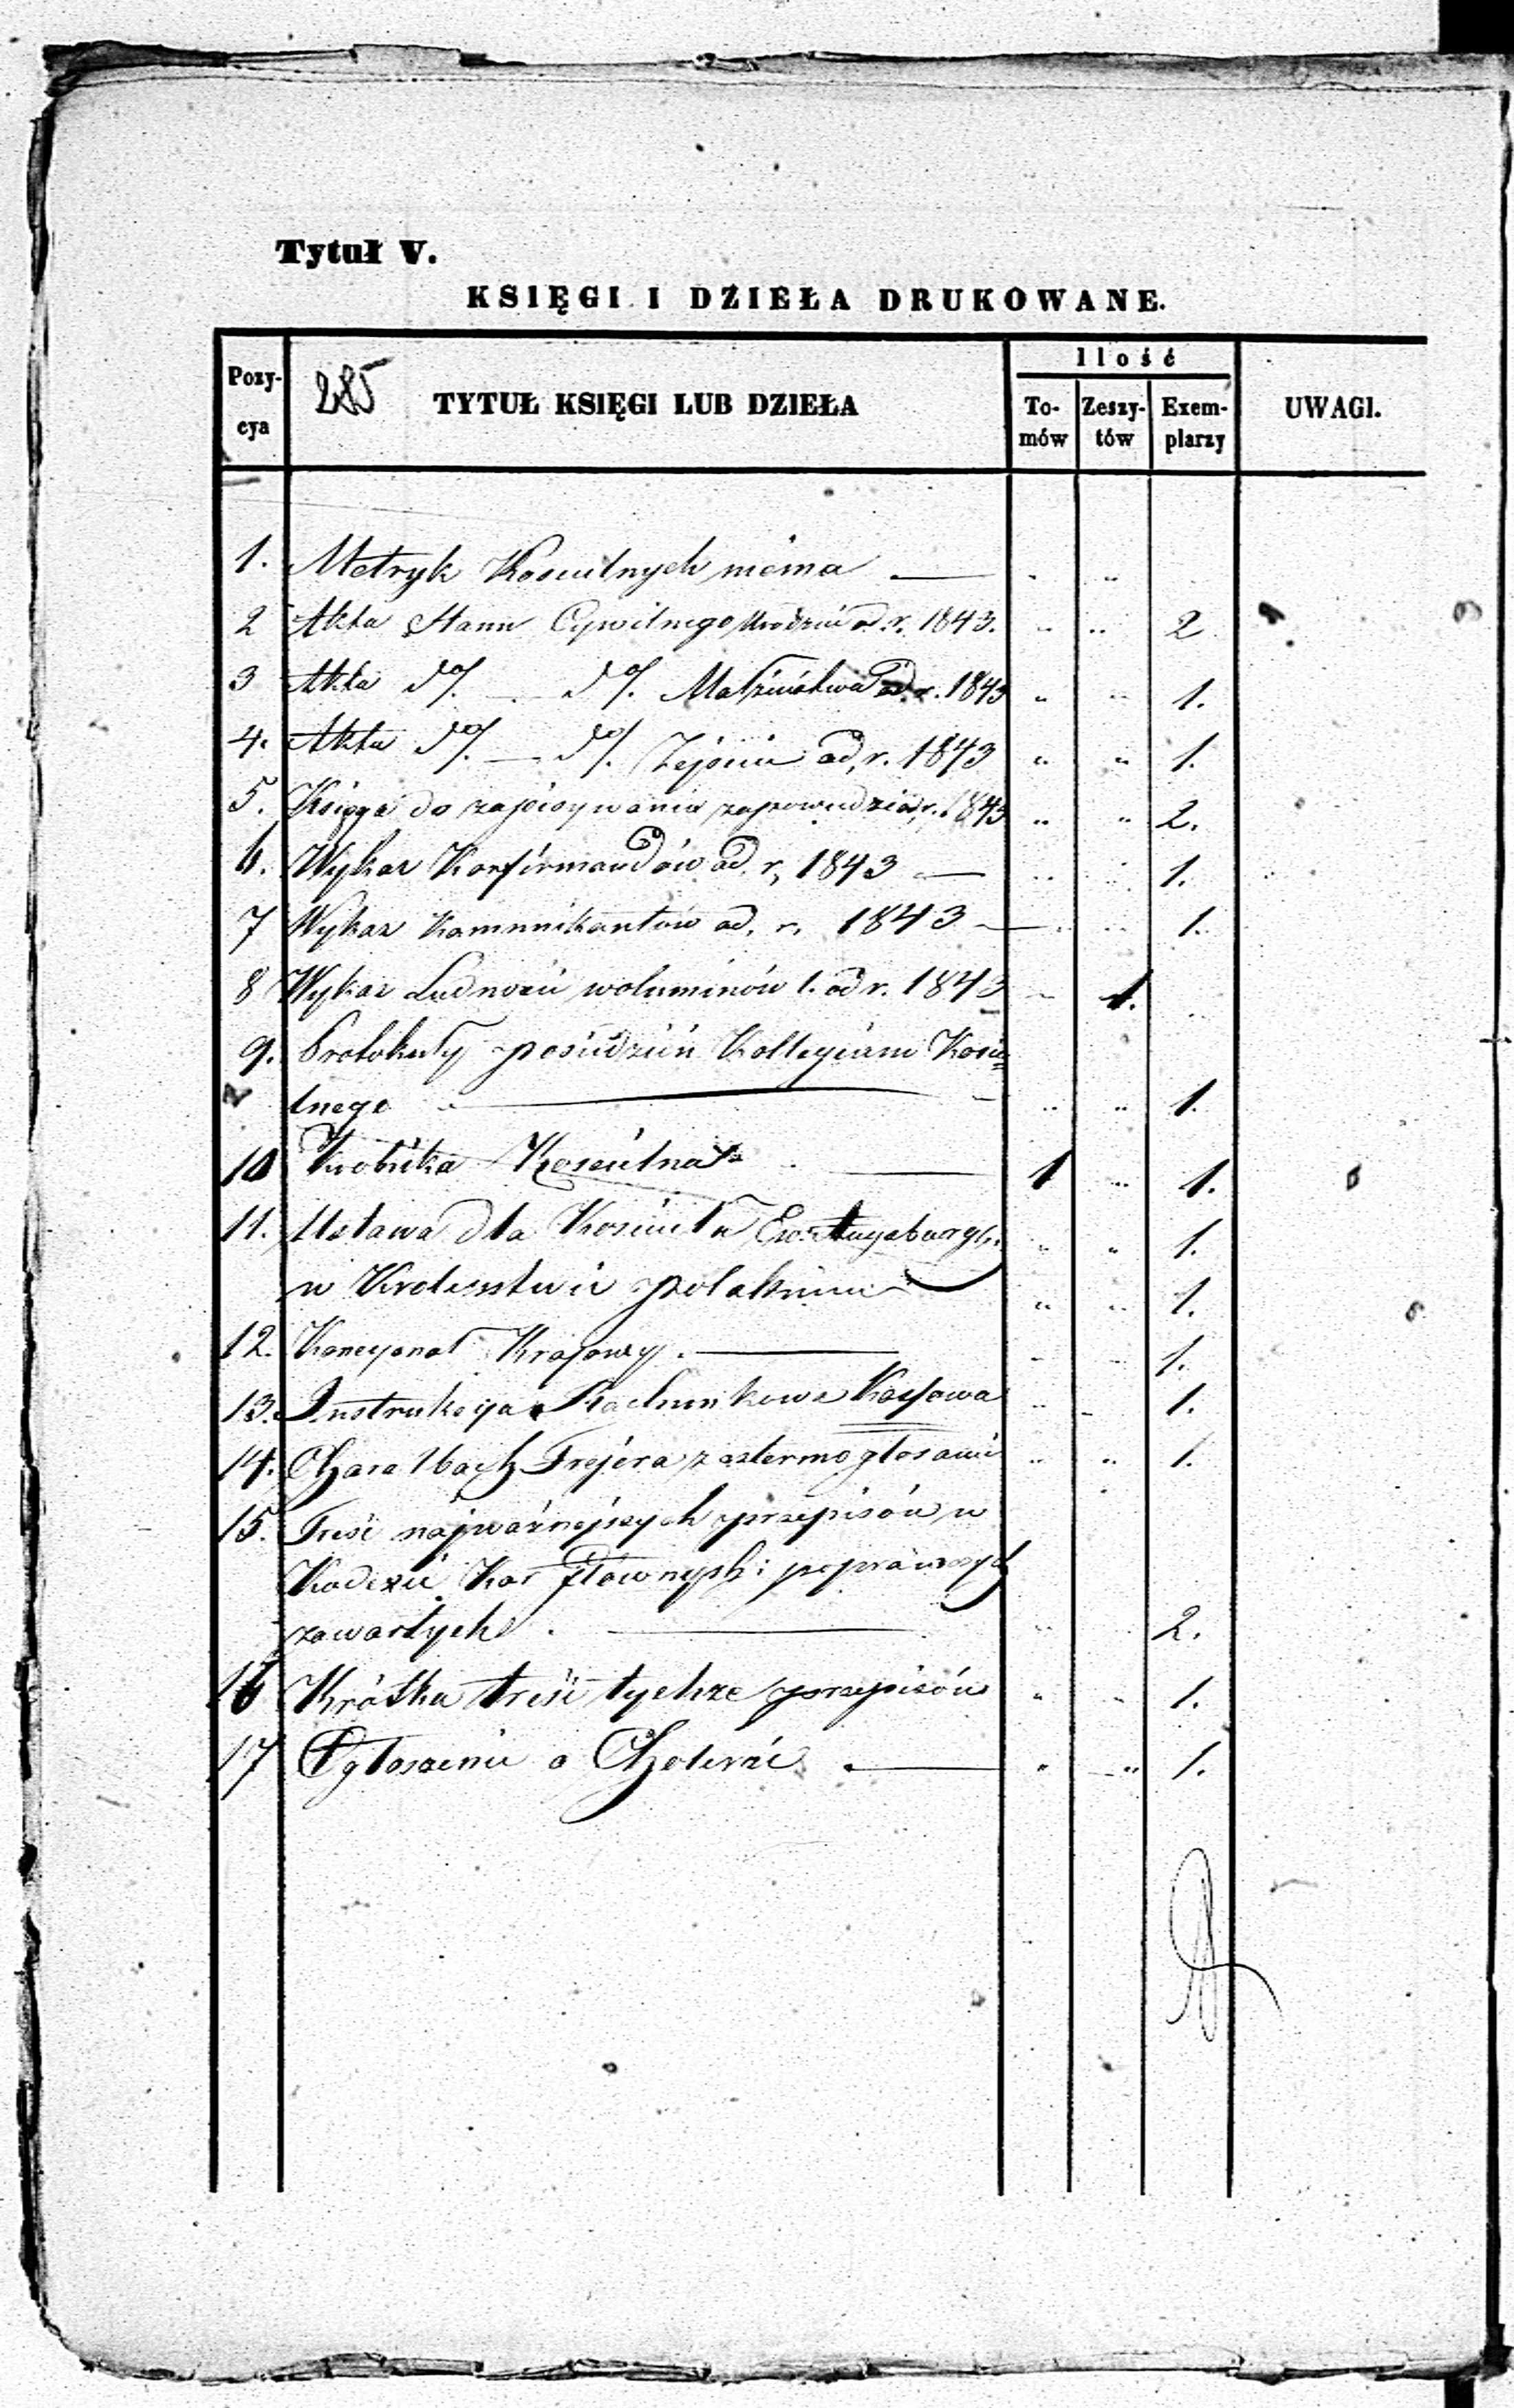 Tytuł V.
KSIĘGI I DZIEŁA DRUKOWANE.
Pozy-cya 285 TYTUŁ KSIĘGI LUB DZIEŁA Ilość To-mów Zeszy-tów Exem-plarzy UWAGI.
1. Metryk Kosciilnych niema — . "
2 Akta Stanu Cywilnego Urodzin od. r. 1843. " " 2
3 Akta do/. — do/. Małżeństwa od r. 1843 " " 1.
4. Akta do/. — do/. Zejscia od, r. 1843 " " 1.
5. Księga do zapisywania zapowiedzi od r. 1843 " " 2.
6. Wykaz Konfirmandów od. r, 1843 — " " 1.
7 Wykaz Kommunikantów od. r, 1843 — " " 1.
8 Wykaz Ludności woluminów 1. od r. 1843 " 1. "
9. Protokuły posiedzień Kollegium Koście=
lnego — " " 1.
10 Kościelna — 1 " 1.
11. Ustawa dla Kościoła Ew. Augsburgs. " " 1.
w Krolesstwie polskiem " " 1.
12. Kancyonał Krajowy. — " " 1.
13. Instrukcya Rachunkowa Kassowa " " 1.
14. Frejera z czterma głosami " " 1.
15. Treść najważnejszych przepisów w
Kodexie Kar głównych i poprawczych
zawartych . — " 2.
16 Krótka treść tychże przepisów " " 1.
17 Ogłoszenie o Cholerze — " " 1.